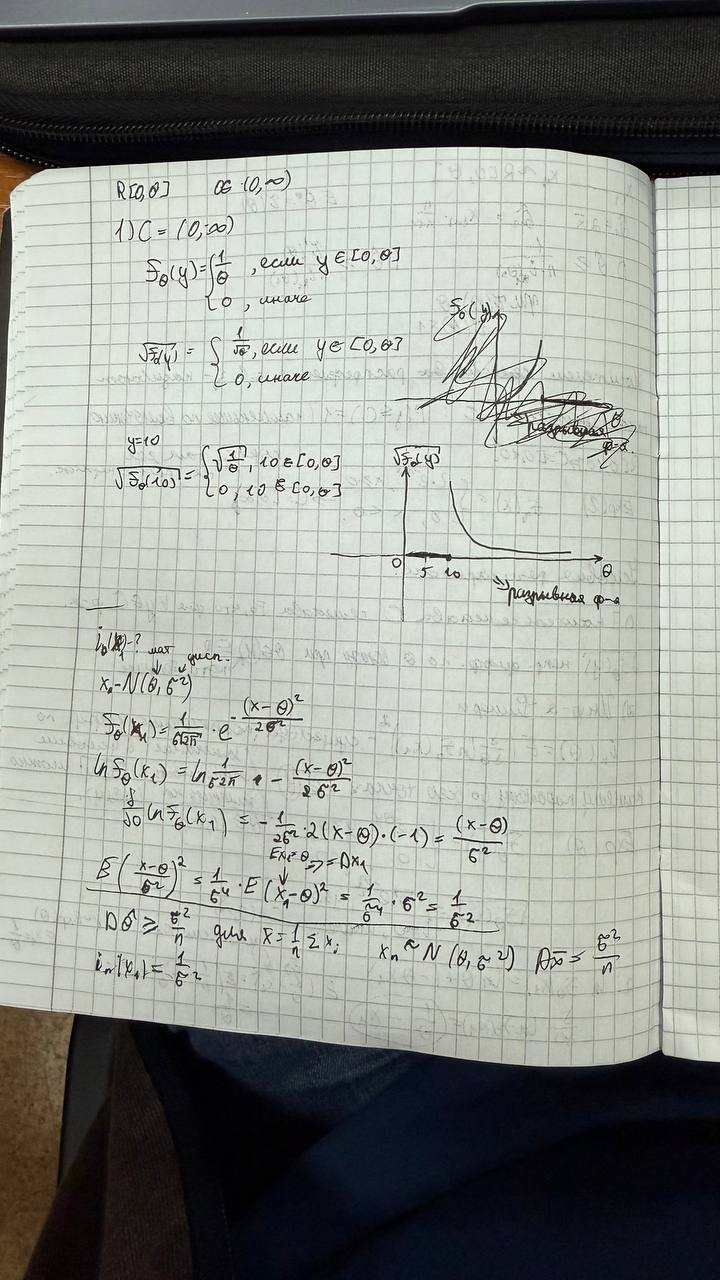 R[0,θ] θ∈(0,∞)
1) C = (0,∞)
f_θ(y) = { 1/θ , если y ∈ [0,θ]
0 , иначе
√f_θ(y) = { 1/√θ , если y ∈ [0,θ]
0, иначе
f_θ(y)
θ
разрывная
ф-я.
y=10
√f_θ(10) = { √(1/θ) , 10 ∈ [0,θ]
0, 10 ∉ [0,θ]
√f_θ(y)
0 5 10 θ
=> разрывная ф-я
i_θ(x_1)-?
мат дисп.
x_1~N(θ,σ²)
f_θ(x_1) = 1/(σ√2π) · e^(-(x-θ)²/2σ²)
ln f_θ(x_1) = ln 1/(σ√2π) - (x-θ)²/2σ²
∂/∂θ ln f_θ(x_1) = -1/2σ² · 2(x-θ)·(-1) = (x-θ)/σ²
Ex_1=θ => = Dx_1
E((x-θ)/σ²)² = 1/σ⁴ · E(x_1-θ)² = 1/σ⁴ · σ² = 1/σ²
Dθ̂ ≥ σ²/n для x̄ = 1/n Σx_i x_n ~ N(θ,σ²) Dx̄ = σ²/n
i_n(x_1) = 1/σ²